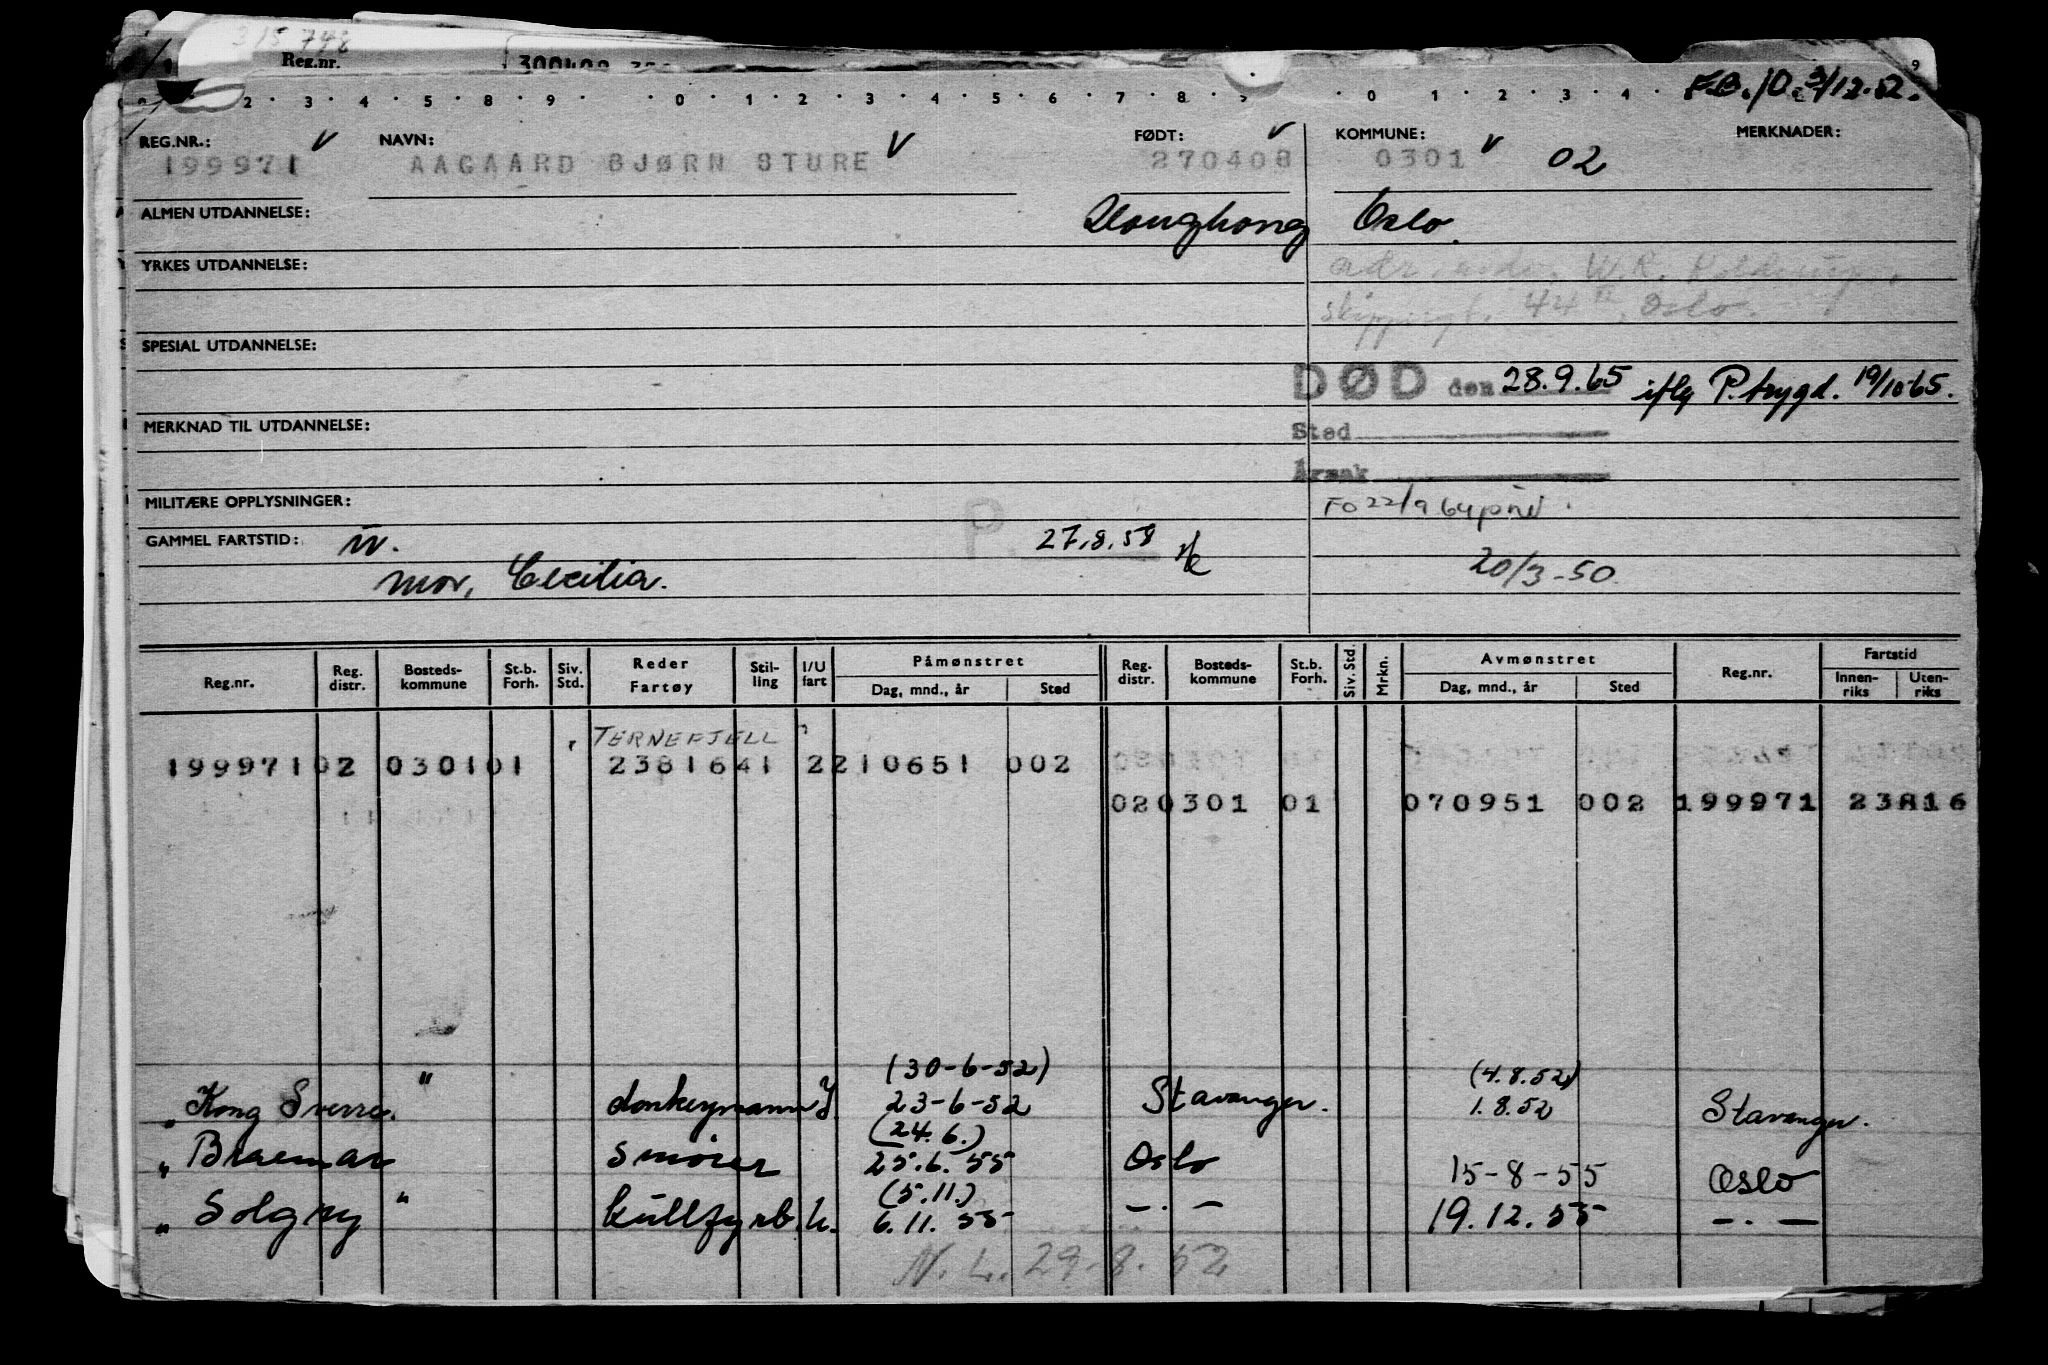 315 748
Reg.nr.
F.B. 10. 3/12.52.
2 3 4 5 8 9 0 1 2 3 4 5 6 7 8 9 0 1 2 3 4
REG.NR.: NAVN: FØDT: KOMMUNE: MERKNADER:
199971 AAGAARD BJØRN STURE 270408 0301 02
ALMEN UTDANNELSE: Hongkong Oslo.
YRKES UTDANNELSE:
W.R.
44 II, Oslo.
SPESIAL UTDANNELSE:
DØD den 28.9.65 iflg P.trygd. 19/10-65.
MERKNAD TIL UTDANNELSE: Sted
Årsak
MILITÆRE OPPLYSNINGER: FO 22/9 64
GAMMEL FARTSTID: P. 27.8.58
mor, Cecilia. 20/3-50
Reg.nr. Reg. distr. Bosteds-kommune St.b. Forh. Siv. Std. Reder Fartøy Stil-ling I/U fart Påmønstret Dag, mnd., år Sted Reg. distr. Bosteds-kommune St.b. Forh. Siv. Std. Mrkn. Avmønstret Dag, mnd., år Sted Reg.nr. Fartstid Innen-riks Uten-riks
TERNEFJELL
199971 02 0301 01 23816 41 2 210651 002
02 0301 01 070951 002 199971 23816
(30-6-52) (4.8.52)
" Kong Sverre. " donkeymann 23-6-52 Stavanger. 1.8.52 Stavanger.
(24.6.)
" Braemar smører 25.6.55 Oslo 15-8-55 Oslo
(5.11.)
" Solgry " kullfyrb. u. 6.11.55 -.- 19.12.55 -.-
N.L. 29.8.52